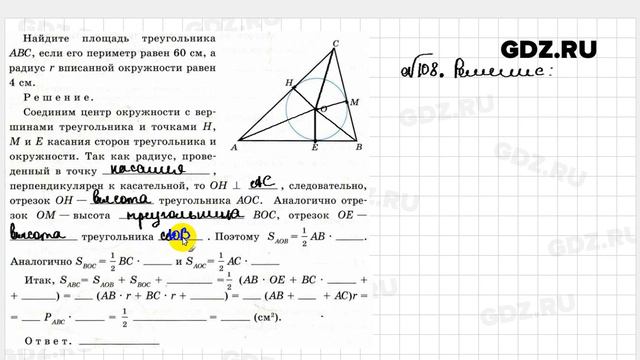 Найдите площадь треугольника
ABC, если его периметр равен 60 см, а
радиус r вписанной окружности равен
4 см.
Решение.
Соединим центр окружности с вер-
шинами треугольника и точками H,
M и E касания сторон треугольника и
окружности. Так как радиус, прове-
денный в точку касания ,
перпендикулярен к касательной, то OH ⊥ AC , следовательно,
отрезок OH — высота треугольника AOC. Аналогично отре-
зок OM — высота треугольника BOC, отрезок OE —
высота треугольника AOB . Поэтому S_AOB = 1/2 AB · ____.
Аналогично S_BOC = 1/2 BC · ____ и S_AOC = 1/2 AC · ____
Итак, S_ABC = S_AOB + S_BOC + ____ = 1/2 (AB · OE + BC · ____ +
+ ____) = ____ (AB · r + BC · r + ____) = ____ (AB + ____ + AC)r =
= ____ P_ABC · ____ = 1/2 ____ = ____ (см²).
Ответ. ____
C
H
M
O
A
E
B
№108. Решение:
GDZ.RU
GDZ.RU
GDZ.RU
GDZ.RU
GDZ.RU